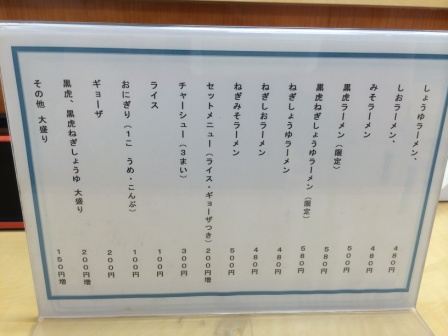 しょうゆラーメン、 480円
しおラーメン、 480円
みそラーメン 500円
黒虎ラーメン(限定) 580円
黒虎ねぎしょうゆラーメン(限定) 580円
ねぎしょうゆラーメン 480円
ねぎしおラーメン 480円
ねぎみそラーメン 500円
セットメニュー(ライス・ギョーザつき) 200円増
チャーシュー(3まい) 300円
ライス 100円
おにぎり(1こ うめ・こんぶ) 100円
ギョーザ 200円
黒虎、黒虎ねぎしょうゆ 大盛り 200円増
その他 大盛り 150円増